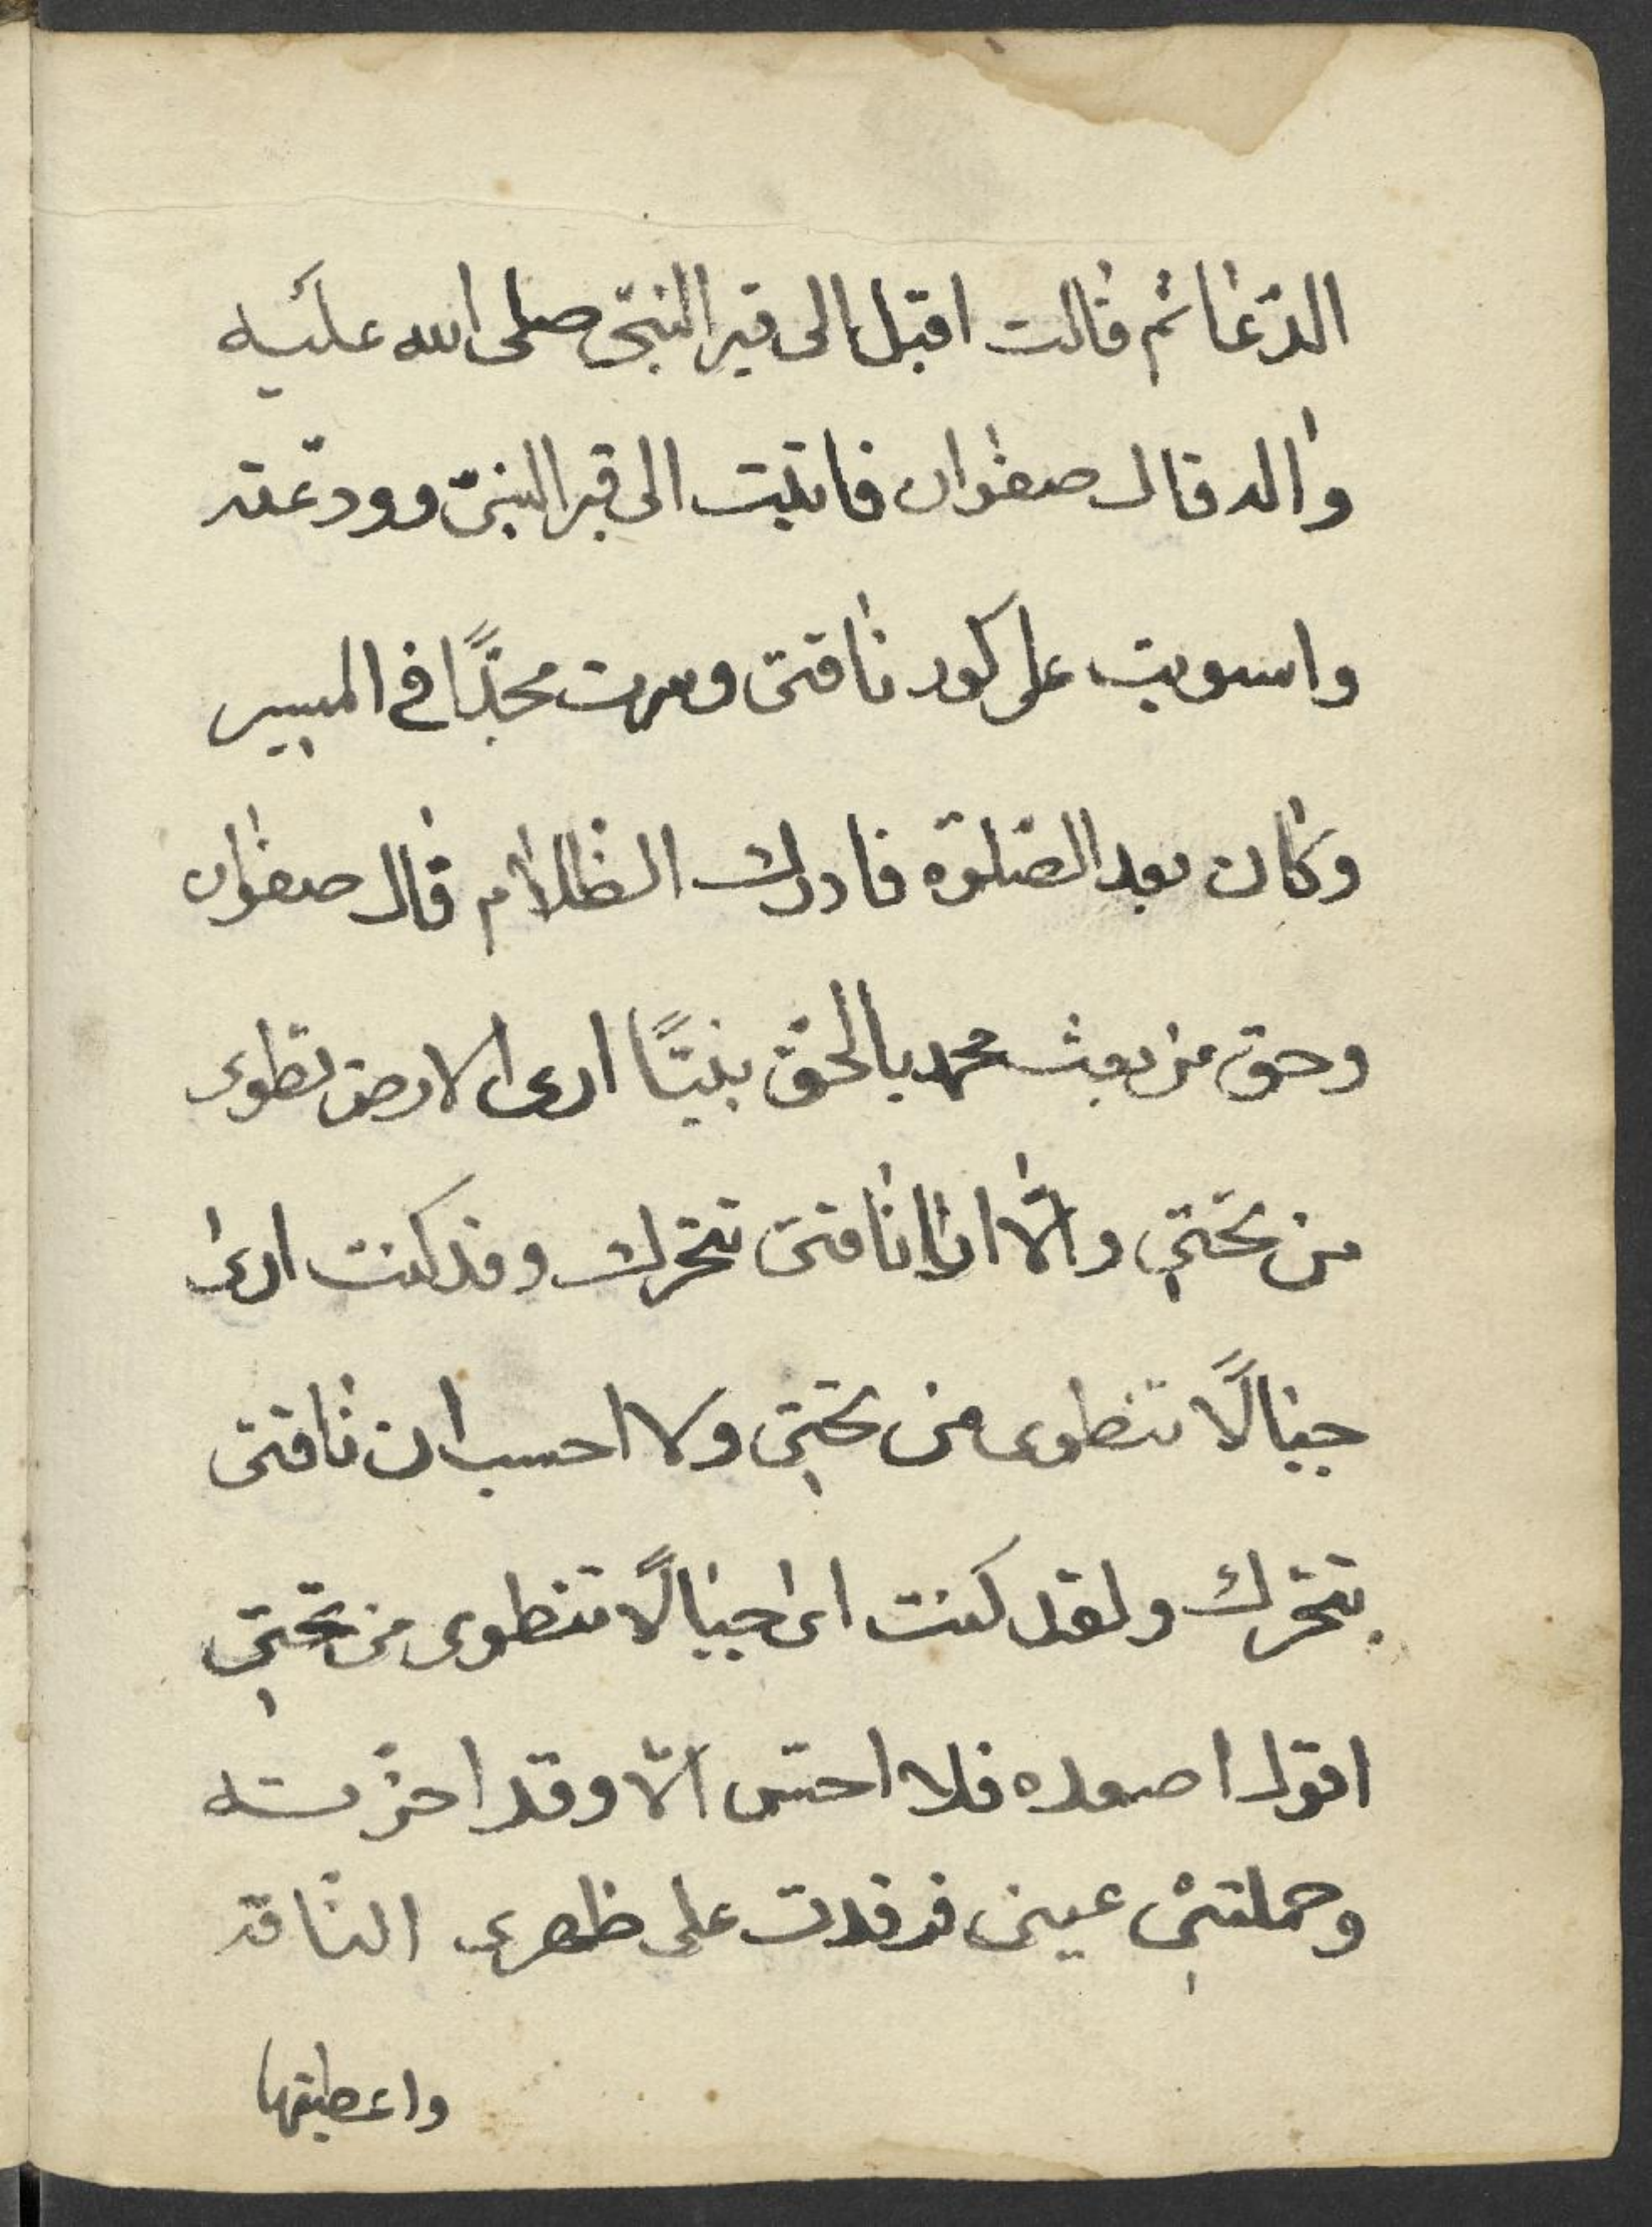 الدّعا ثم قالت اقبل الى قبر النبىّ صلى الله عليه
واله قال صفوان فاتيت الى قبر النبىّ وودّعته
واسويت على كور ناقتى وسرت مجدًّا فى المسير
وكان بعد الصّلوة فادرك الظلام قال صفوان
وحق من بعث محمد بالحقّ نبيًّا ارى الارض تطوى
من تحتي والّا انا ناقتى تتحرك وقد كنت ارى
جبالًا تنطوى من تحتي ولا احسب ان ناقتى
تتحرّك ولقد كنت ارى جبالًا تنطوى من تحتي
اقول اصعده فلا احسّ الّا وقد احزته
وحملتني عينى فرقدت على ظهرى الناقة
واعطيتها